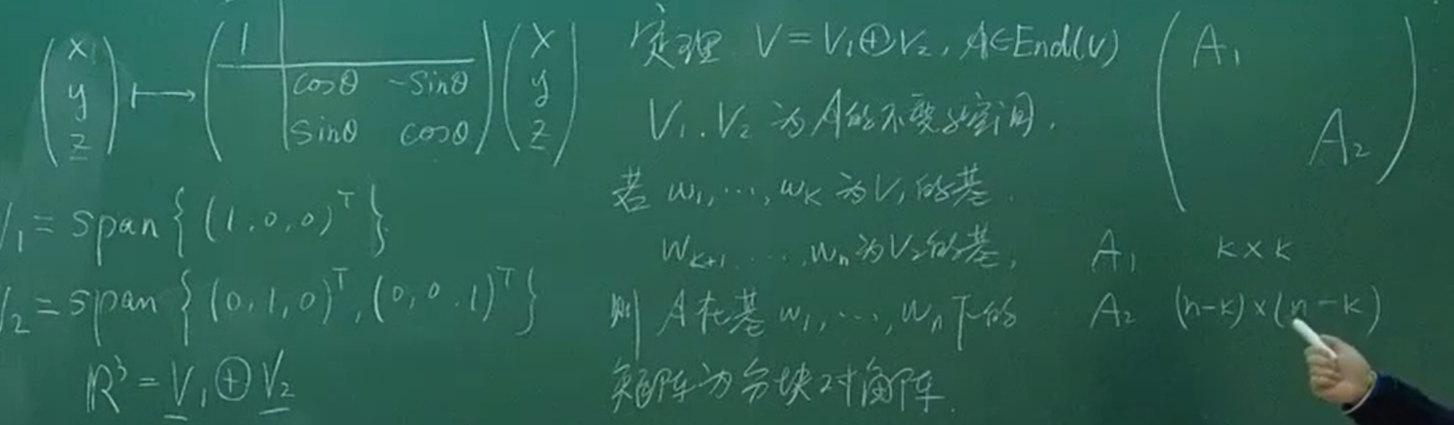 (x y z)ᵀ ⟼ (1 | cosθ −sinθ | sinθ cosθ) (x y z)ᵀ
V₁ = span{(1,0,0)ᵀ}
V₂ = span{(0,1,0)ᵀ,(0,0,1)ᵀ}
ℝ³ = V₁⊕V₂
定理 V=V₁⊕V₂, A∈End(V)
V₁.V₂为A的不变子空间.
若 w₁,⋯,wₖ为V₁的基.
wₖ₊₁,⋯,wₙ为V₂的基,
则A在基w₁,⋯,wₙ下的
矩阵为分块对角阵.
(A₁
A₂)
A₁ k×k
A₂ (n-k)×(n-k)